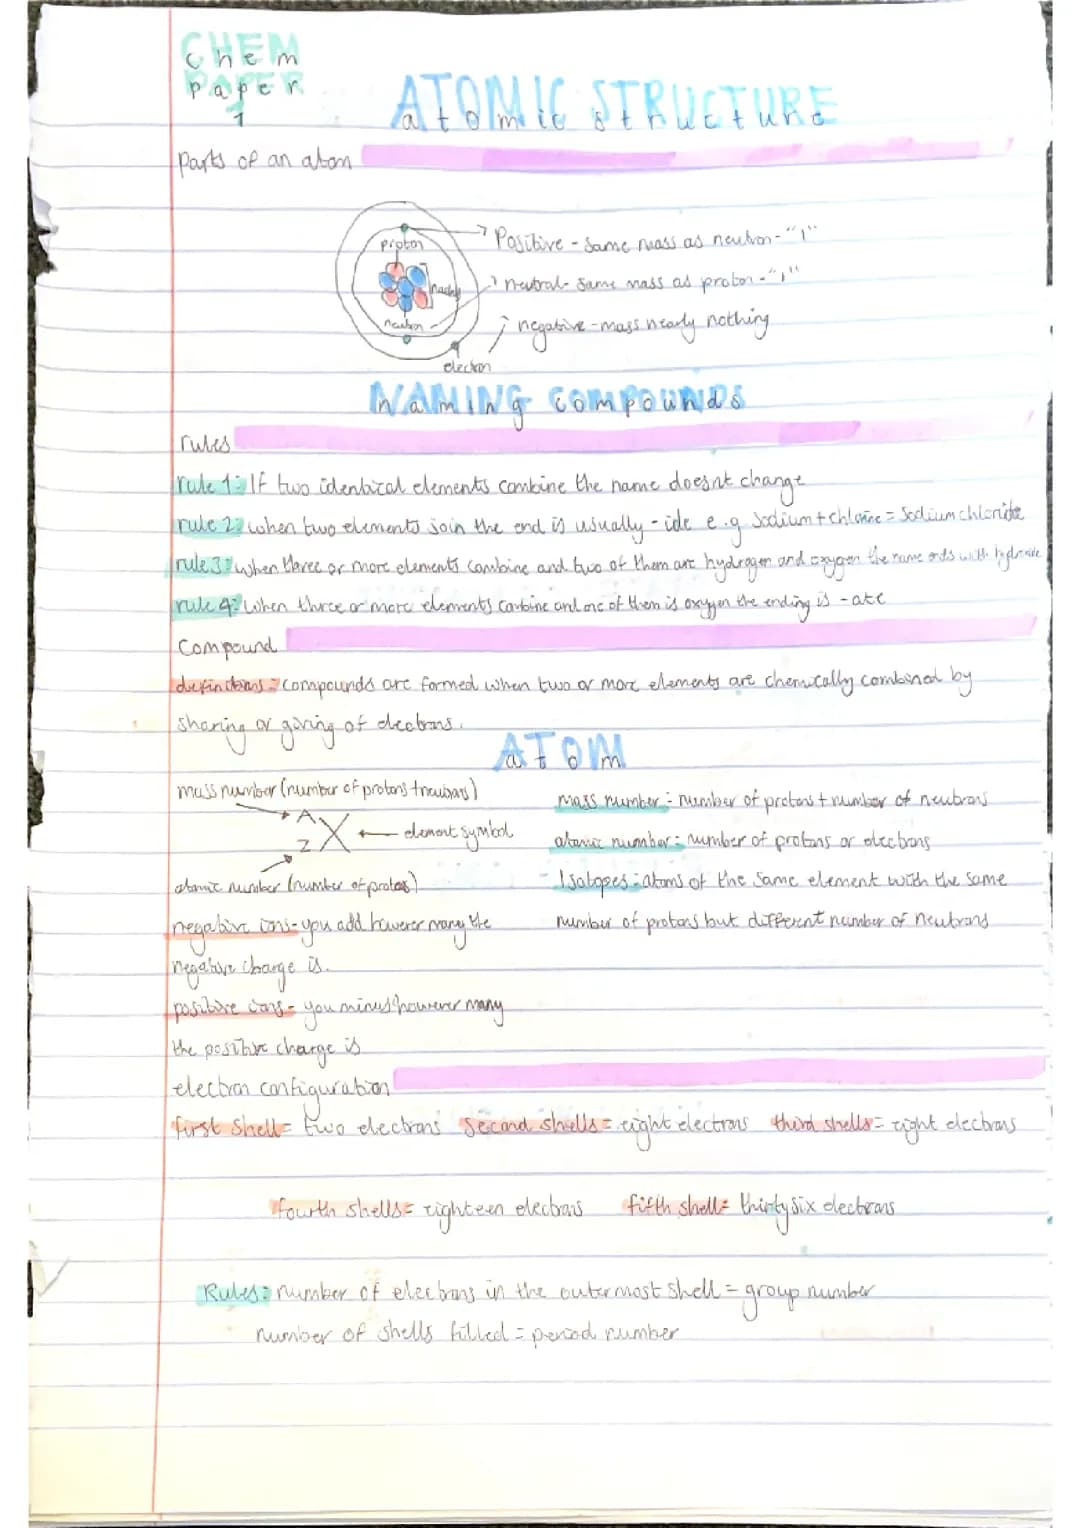 Chem
paper
1
ATOMIC STRUCTURE
atomic structure
parts of an atom
proton
nucleus
neutron
electron
Positive - same mass as neutron - "1"
neutral - same mass as proton - "1"
negative - mass nearly nothing
NAMING COMPOUNDS
rules
rule 1: If two identical elements combine the name doesnt change
rule 2: when two elements join the end is usually -ide e.g Sodium + chlorine = Sodium chloride
rule 3: when three or more elements combine and two of them are hydrogen and oxygen the name ends with hydroxide
rule 4: When three or more elements combine and one of them is oxygen the ending is -ate
Compound
definitions: compounds are formed when two or more elements are chemically combined by
sharing or giving of electrons.
ATOM
mass number (number of protons + neutrons)
A
X
Z
element symbol
atomic number (number of protons)
mass number: number of protons + number of neutrons
atomic number: number of protons or electrons
Isotopes: atoms of the same element with the same
number of protons but different number of neutrons
negative ions - you add however many the
negative charge is.
positive ions - you minus however many
the positive charge is
electron configuration
first shell = two electrons second shells = eight electrons third shells = eight electrons
fourth shells = eighteen electrons fifth shell = thirty six electrons
Rules: number of electrons in the outermost shell = group number
number of shells filled = period number